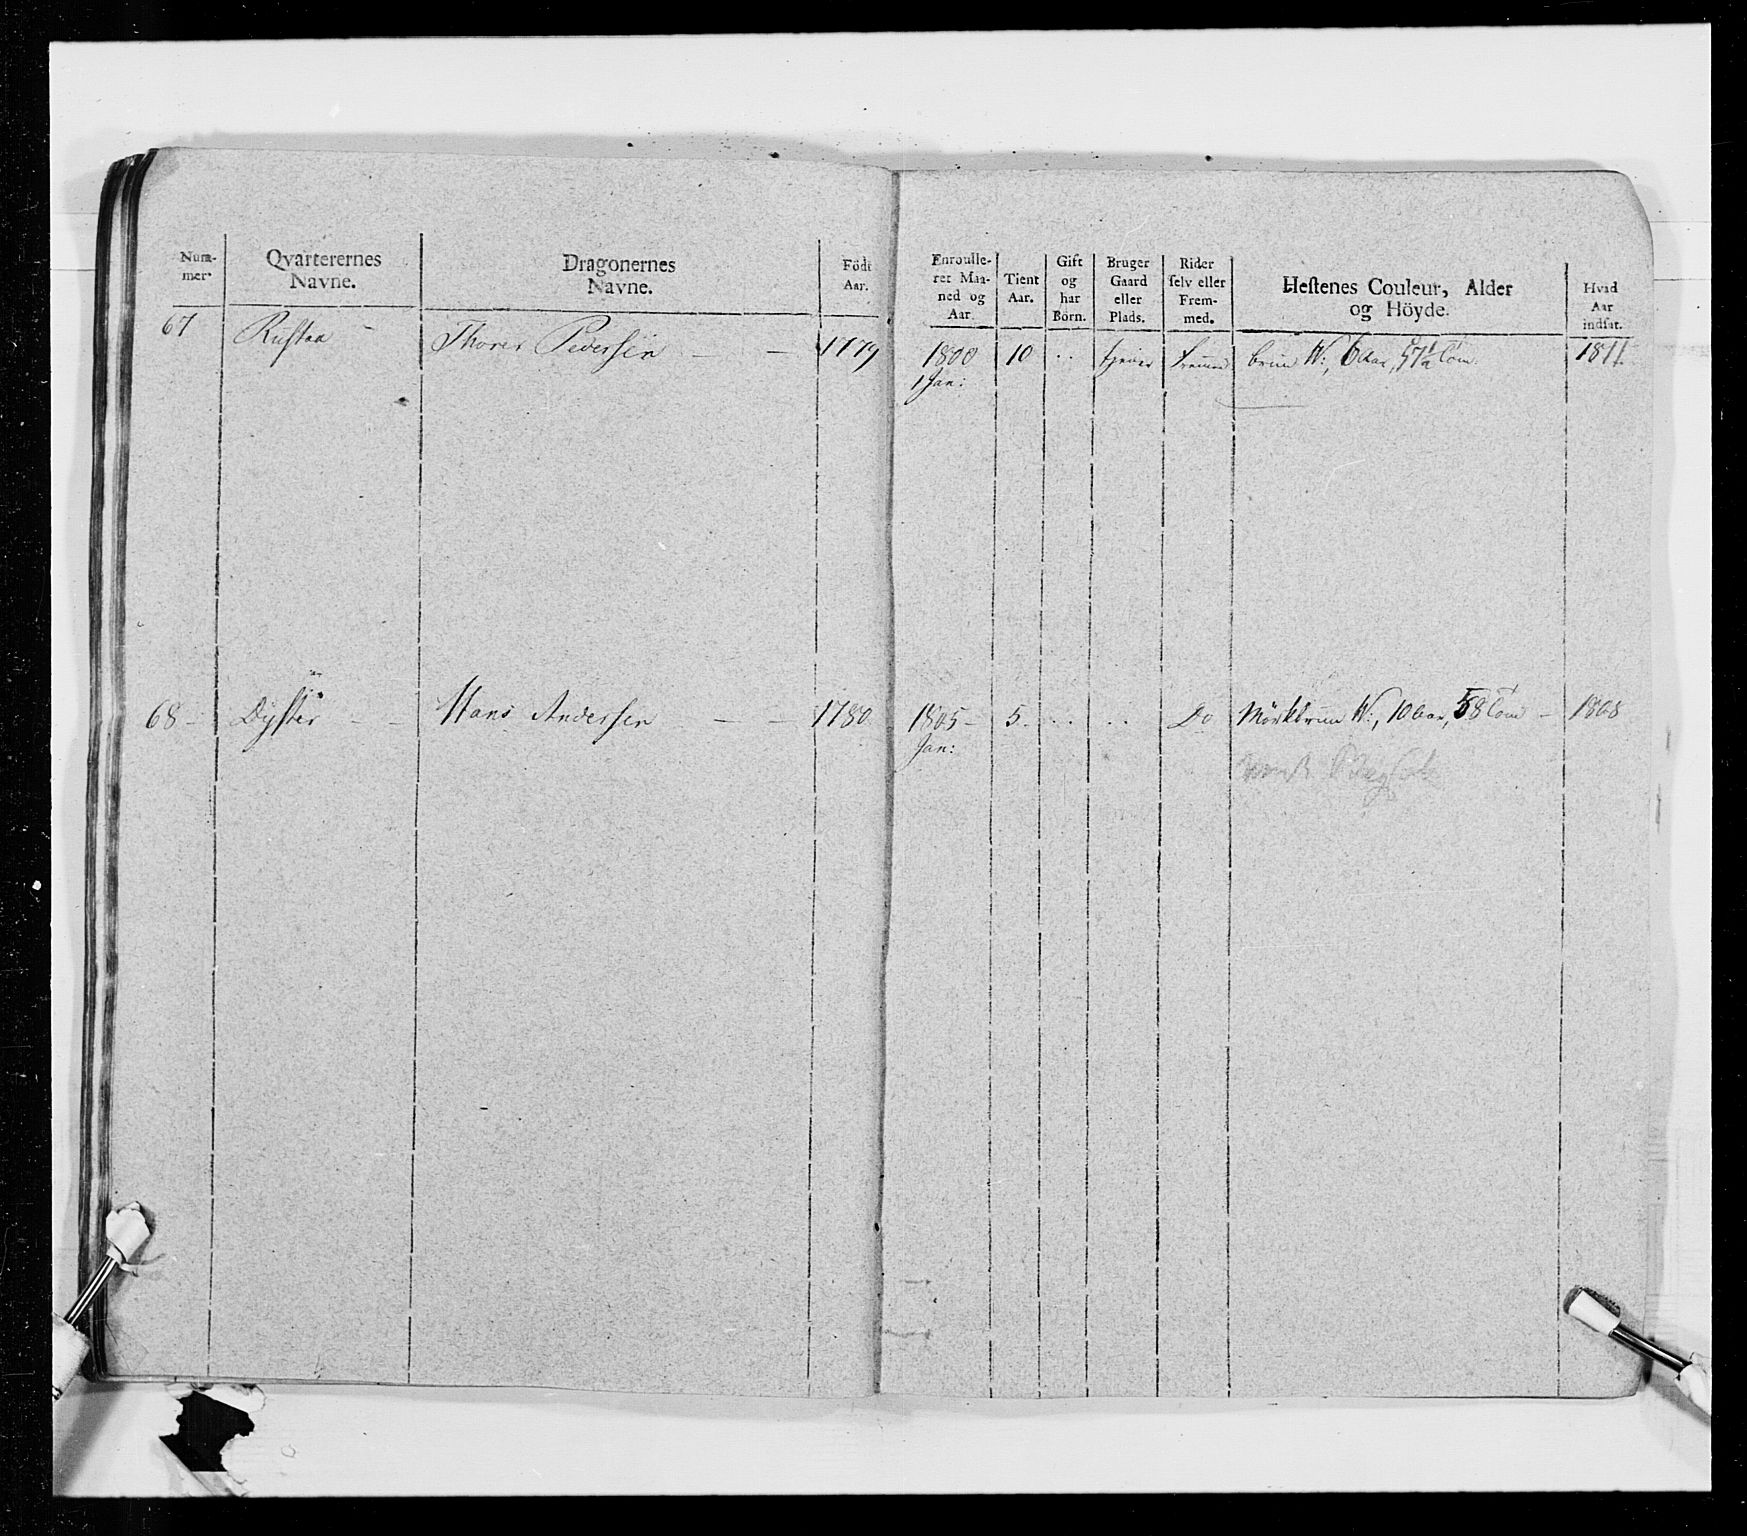 Num-
mer.
Qvarterernes
Navne.
Dragonernes
Navne.
Födt
Aar.
Enroulle-
ret Maa-
ned og
Aar.
Tient
Aar.
Gift
og
har
Börn.
Bruger
Gaard
eller
Plads.
Rider
selv eller
Frem-
med.
Hestenes Couleur, Alder
og Höyde.
Hvad
Aar
indsat.
67 Rustaa - Thorer Pedersen - - 1779 1800 10 .. tjener fremmed brun W:, 6 Aar, 57½ Tom. 1811.
1 Jan:
68 - Dyster - - Hans Andersen - - 1780 1805 - 5. .. .. Do Mörkbrun W:, 10 Aar, 58 Tom - 1808
Jan: